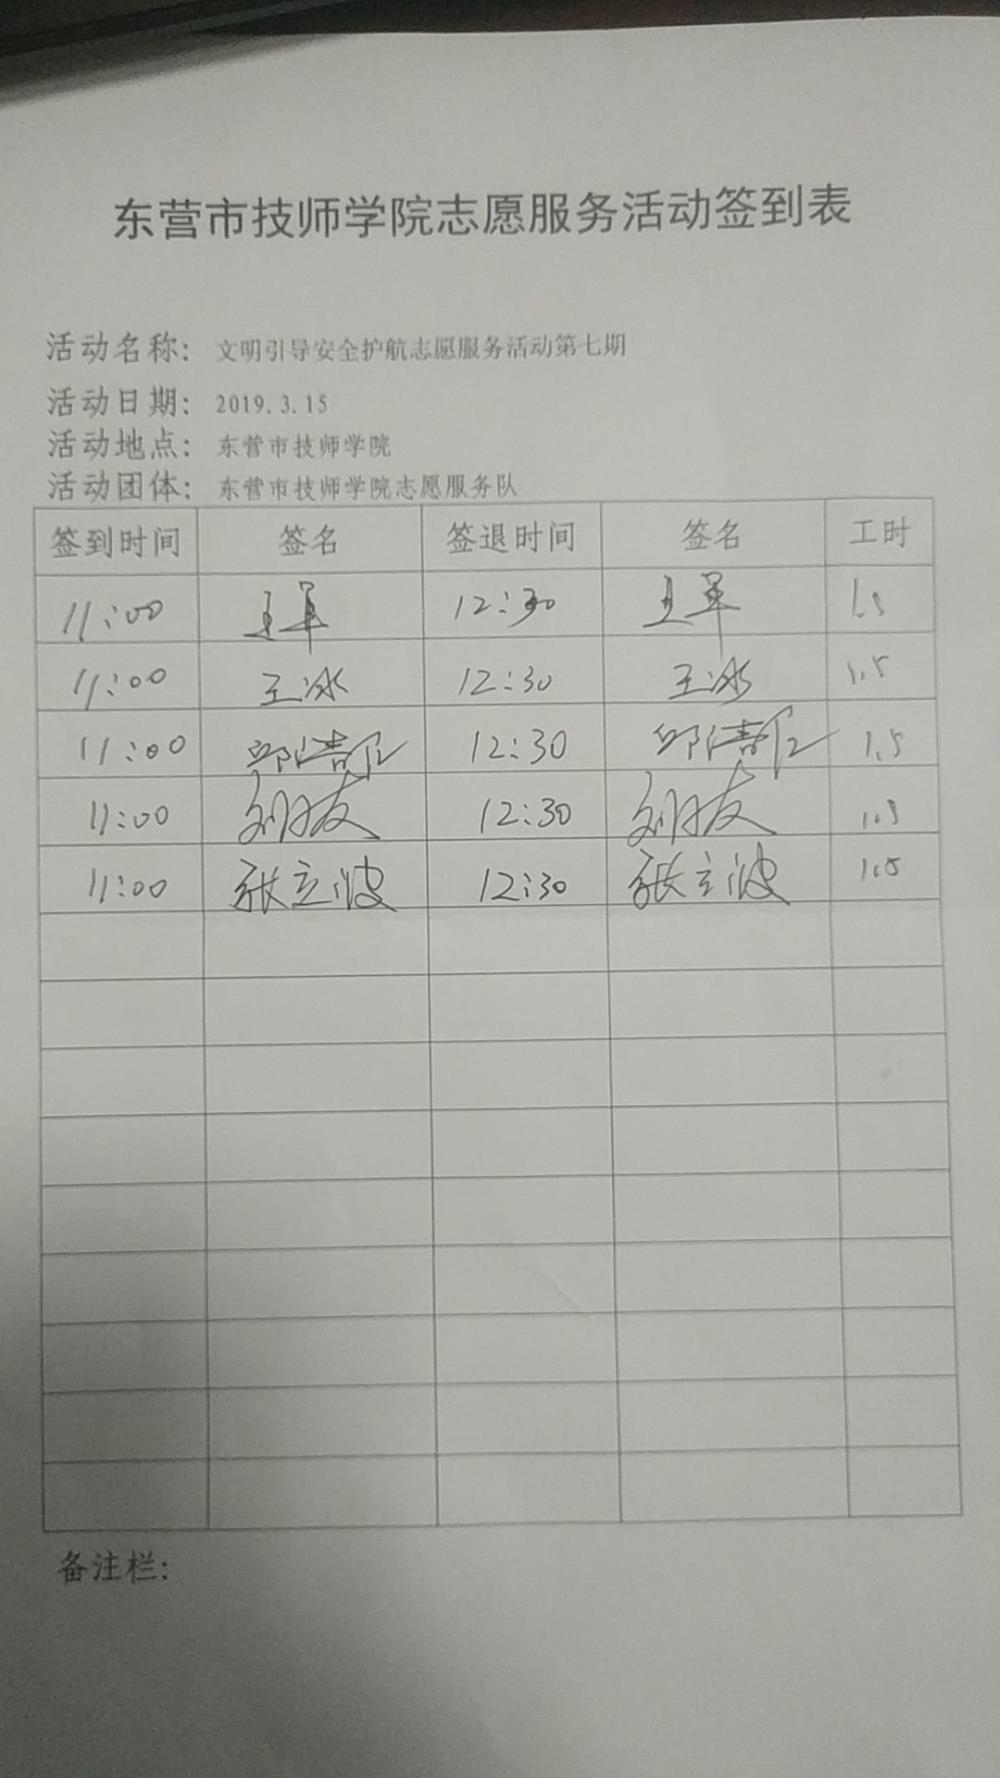 东营市技师学院志愿服务活动签到表
活动名称： 文明引导安全护航志愿服务活动第七期
活动日期： 2019.3.15
活动地点： 东营市技师学院
活动团体： 东营市技师学院志愿服务队
签到时间 签名 签退时间 签名 工时
11:00 王军 12:30 王军 1.5
11:00 王冰 12:30 王冰 1.5
11:00 12:30 1.5
11:00 12:30 1.5
11:00 张立波 12:30 张立波 1.5
备注栏：